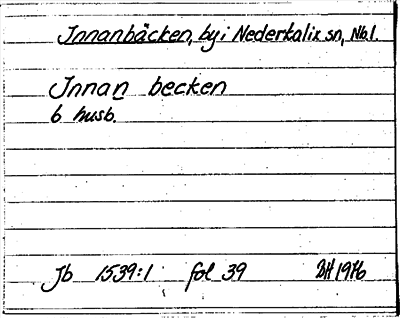 Innanbäcken, by i Nederkalix sn, Nbl.
Innan becken
6 husb.
Jb 1539:1 fol 39 BH 1976